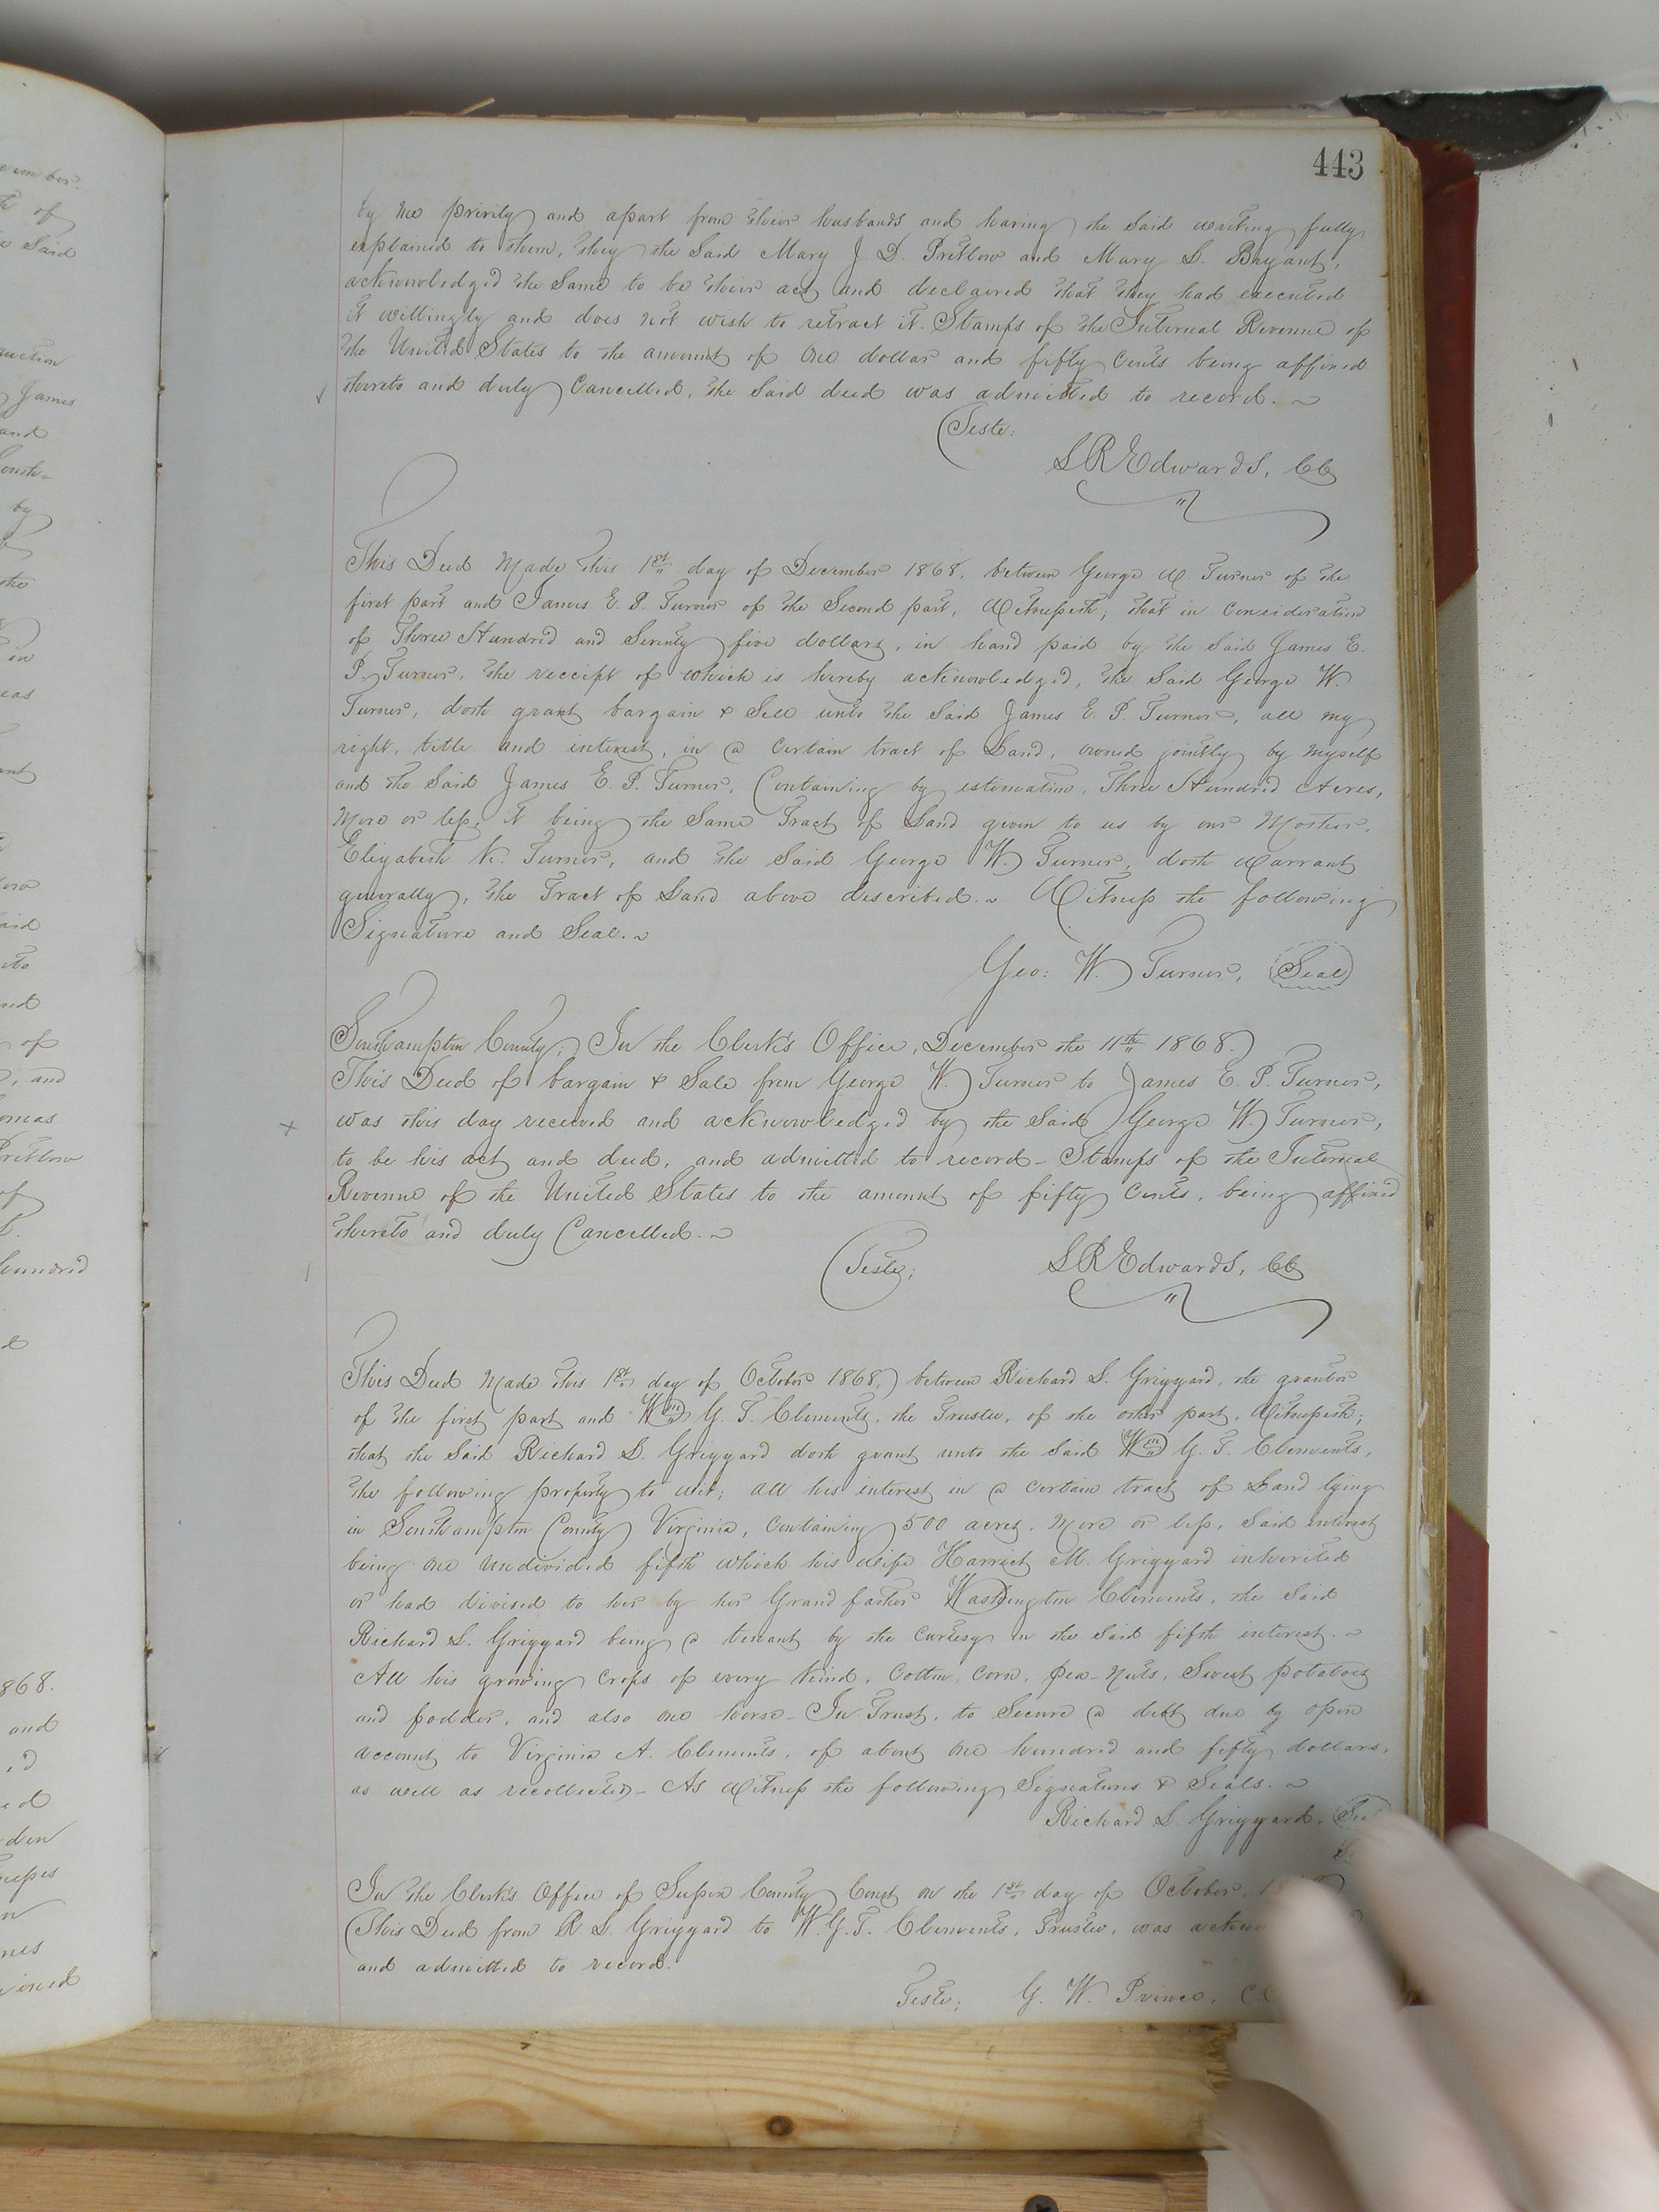 443
by me privily and apart from their husbands and having the said writing fully
explained to them, they the said Mary J. D. Pretlow and Mary S. Bryant,
acknowledged the same to be their act and declared that they had executed
it willingly and does not wish to retract it. Stamps of the Internal Revenue of
the United States to the amount of one dollar and fifty cents being affixed
thereto and duly Cancelled, the said deed was admitted to record.
Teste:
S R Edwards, CC
This Deed Made this 1st day of December 1868, between George W. Turner of the
first part and James E. P. Turner of the Second part, Witnesseth, that in consideration
of Three Hundred and Seventy five dollars, in hand paid by the said James E.
P. Turner, the receipt of which is hereby acknowledged, the said George W.
Turner, doth grant bargain & Sell unto the said James E. P. Turner, all my
right, title and interest, in a certain tract of Land, owned jointly by myself
and the said James E. P. Turner, Containing by estimation, Three Hundred Acres,
More or less, it being the same Tract of Land given to us by our Mother,
Elizabeth K. Turner, and the said George W. Turner, doth warrant
generally, the Tract of Land above described. Witness the following
Signature and Seal.
Geo: W. Turner, Seal
Southampton County; In the Clerk's Office, December the 11th 1868.
This Deed of bargain & Sale from George W. Turner to James E. P. Turner,
was this day received and acknowledged by the said George W. Turner,
to be his act and deed, and admitted to record - Stamps of the Internal
Revenue of the United States to the amount of fifty cents, being affixed
thereto and duly Cancelled.
Teste; S R Edwards, CC
This Deed Made this 1st day of October 1868, between Richard S. Griggard, the grantor
of the first part and Wm G. T. Clements, the Trustee, of the other part, Witnesseth;
that the said Richard S. Griggard doth grant unto the said Wm G. T. Clements,
the following property to wit; all his interest in a certain tract of Land lying
in Southampton County Virginia, containing 500 acres, More or less, said interest
being one undivided fifth which his wife Harriet M. Griggard inherited
or had divised to her by her Grand father Washington Clements, the said
Richard S. Griggard being a tenant by the curtesy in the said fifth interest.
All his growing crops of every kind, Cotton, corn, pea-nuts, Sweet potatoes
and fodder, and also one horse - In Trust, to Secure a debt due by open
account to Virginia A. Clements, of about one hundred and fifty dollars,
as well as recollected - As Witness the following Signatures & Seals.
Richard S. Griggard, Seal
In the Clerk's Office of Super County Court on the 1st day of October
This Deed from R. S. Griggard to W. G. T. Clements, Trustee, was
and admitted to record.
Teste; G. W. Prince, C.C